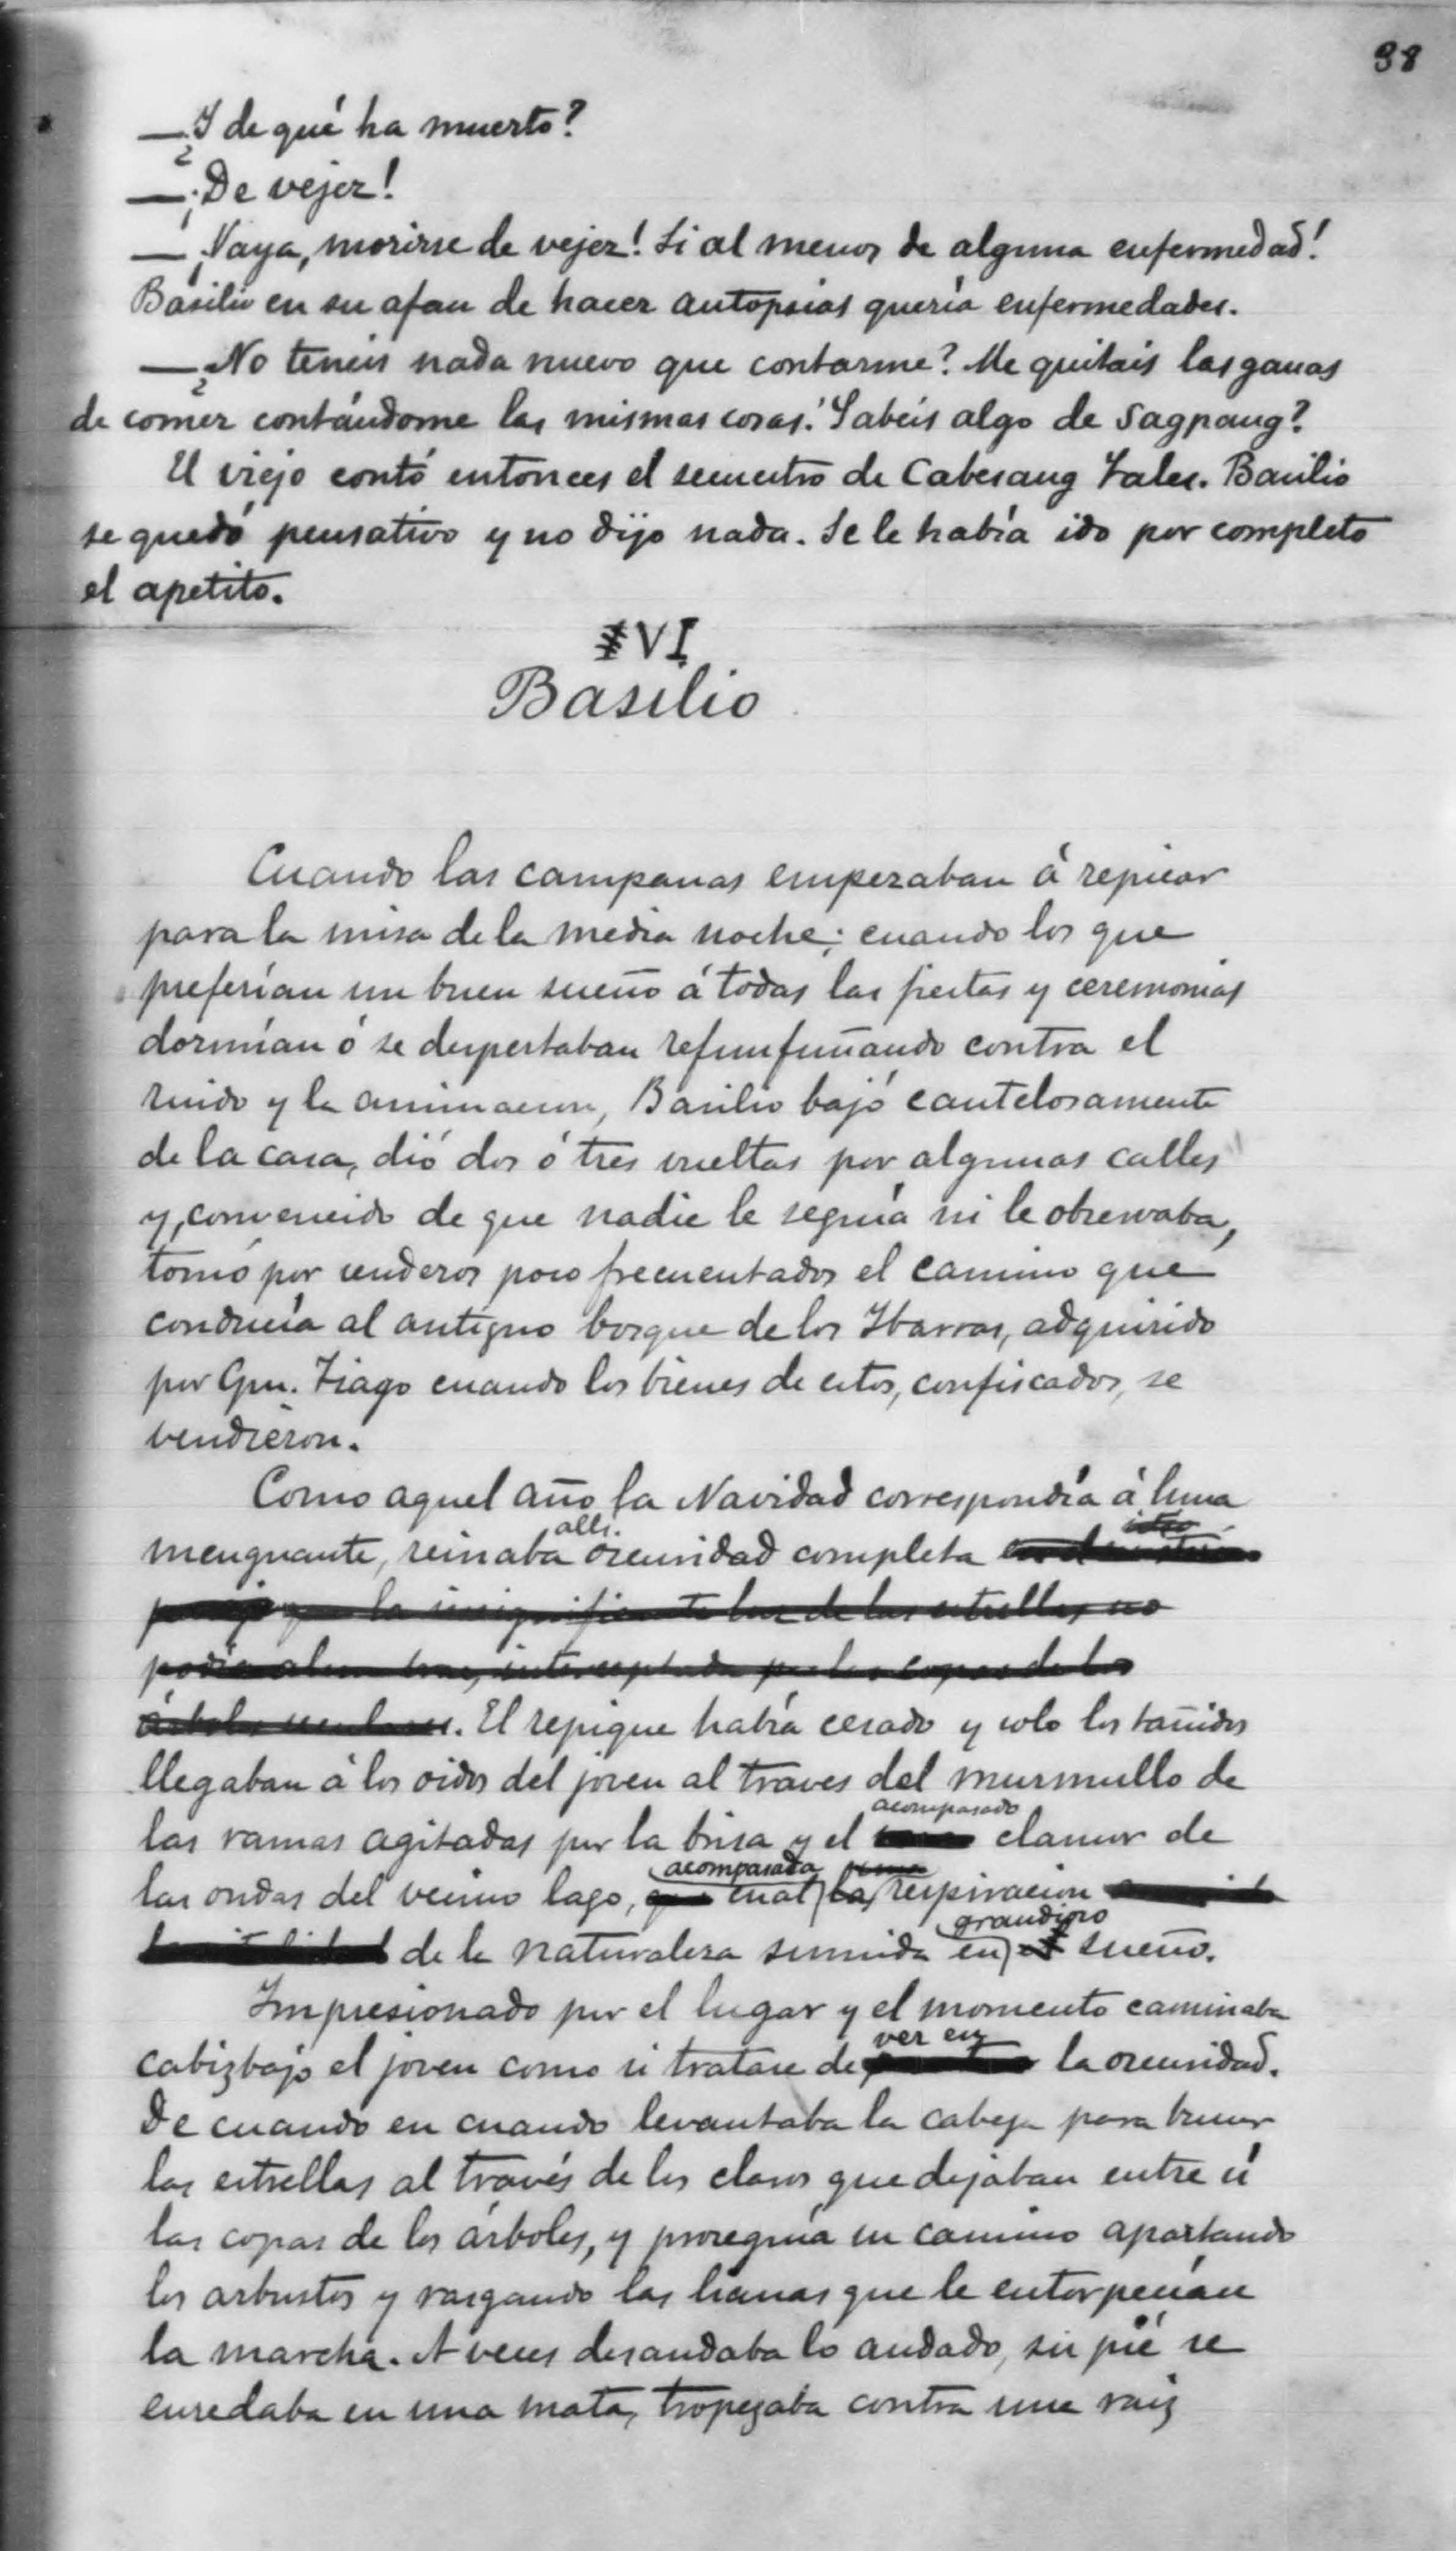 38
—¿Y de qué ha muerto?
—¡De vejez!
—¡Vaya, morirse de vejez! Si al menos de alguna enfermedad!
Basilio en su afan de hacer autopsias quería enfermedades.
—¿No teneis nada nuevo que contarme? Me quitais las ganas
de comer contándome las mismas cosas. ¿Sabeis algo de Sagpang?
El viejo contó entonces el secuestro de Cabesang Tales. Basilio
se quedó pensativo y no dijo nada. Se le había ido por completo
el apetito.
VI
Basilio
Cuando las campanas empezaban á repicar
para la misa de la media noche; cuando los que
preferían un buen sueño á todas las fiestas y ceremonias
dormían ó se despertaban refunfuñando contra el
ruido y la animacion, Basilio bajó cautelosamente
de la casa, dió dos ó tres vueltas por algunas calles
y, convencido de que nadie le seguía ni le observaba,
tomó por senderos poco frecuentados el camino que
conducía al antiguo bosque de los Ibarras, adquirido
por Cpn. Tiago cuando los bienes de estos, confiscados, se
vendieron.
Como aquel año la Navidad correspondía á luna
allí.
menguante, reinaba oscuridad completa
que la insignificante luz de las estrellas no
podía interceptada por las copas de los
árboles. El repique había cesado y solo los tañidos
llegaban á los oidos del joven al traves del murmullo de
acompasado
las ramas agitadas por la brisa y el clamor de
acompasada
las ondas del vecino lago, cual la respiracion
grandioso
de la naturaleza sumida en el sueño.
Impresionado por el lugar y el momento caminaba
ver en
cabizbajo el joven como si tratase de la oscuridad.
De cuando en cuando levantaba la cabeza para buscar
las estrellas al través de los claros que dejaban entre sí
las copas de los árboles, y proseguía su camino apartando
los arbustos y rasgando las lianas que le entorpecían
la marcha. A veces desandaba lo andado, su pié se
enredaba en una mata, tropezaba contra una raiz